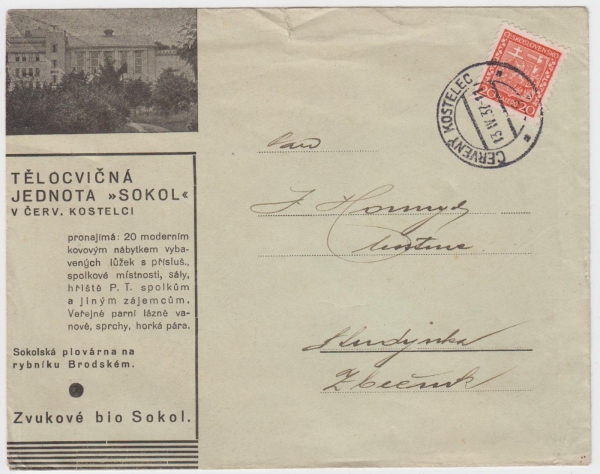 TĚLOCVIČNÁ
JEDNOTA »SOKOL«
V ČERV. KOSTELCI
pronajímá: 20 moderním
kovovým nábytkem vyba-
vených lůžek s přísluš.,
spolkové místnosti, sály,
hřiště P. T. spolkům
a jiným zájemcům.
Veřejné parní lázně va-
nové, sprchy, horká pára.
Sokolská plovárna na
rybníku Brodském.
Zvukové bio Sokol.
ČESKOSLOVENSKO
20 20
ČERVENÝ KOSTELEC
13 IV 37
Pan
J.
Zbečník